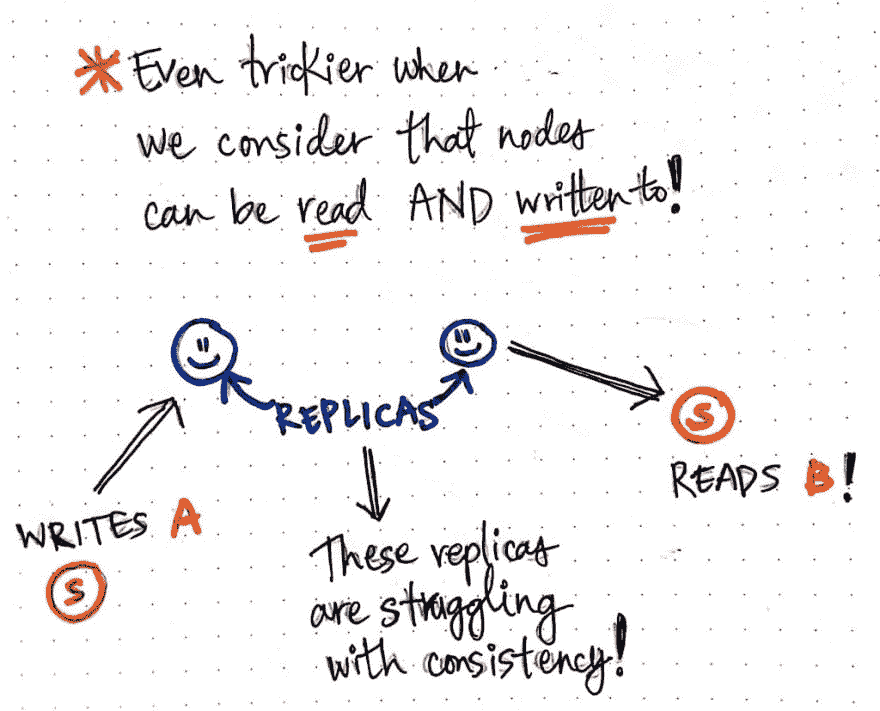 * Even trickier when
we consider that nodes
can be read AND written to!
REPLICAS
WRITES A
S
S
READS B!
These replicas
are struggling
with consistency!